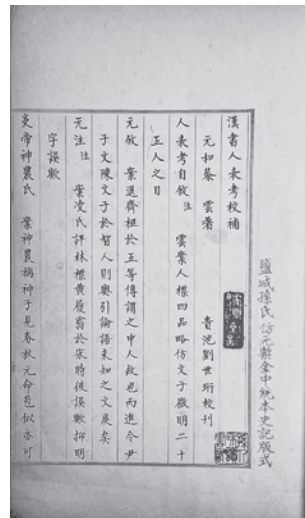 鹽城孫氏仿元蒙金中統本史記版式
漢書人表考校補
元和蔡雲著 貴池劉世珩校刊
人表考自敘注 雲案人標四品略仿文子徵明二十
五人之目
元敘 案選齊桓於五等傳謂之中人故也而進令尹
子文陳文子於智人則與引論語未知之文戾矣
元注注 案凌氏評林標黃履翁於宋時彼誤歟抑明
字誤歟
炎帝神農氏 案神農稱神子見春秋元命苞似亦可